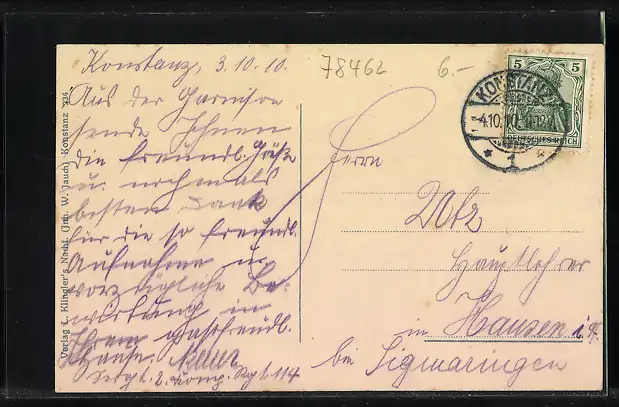 Konstanz, 3.10.10.
Aus der Garnison
sende Ihnen
die freundl. Grüße
u. nochmals
besten Dank
für die so freundl.
Aufnahme u.
vorzügliche Be-
wirtung in
Ihrem gastfreundl.
Hause.
Sergt. 2. Komp. Rgt. 114
78462
6.-
Herrn
Utz
Hauptlehrer
in Hausen
bei Sigmaringen
5 5
DEUTSCHES REICH
KONSTANZ
4.10.10
* 1 *
Verlag L. Klingler's Nachf. (Inh. W. Jauch) Konstanz